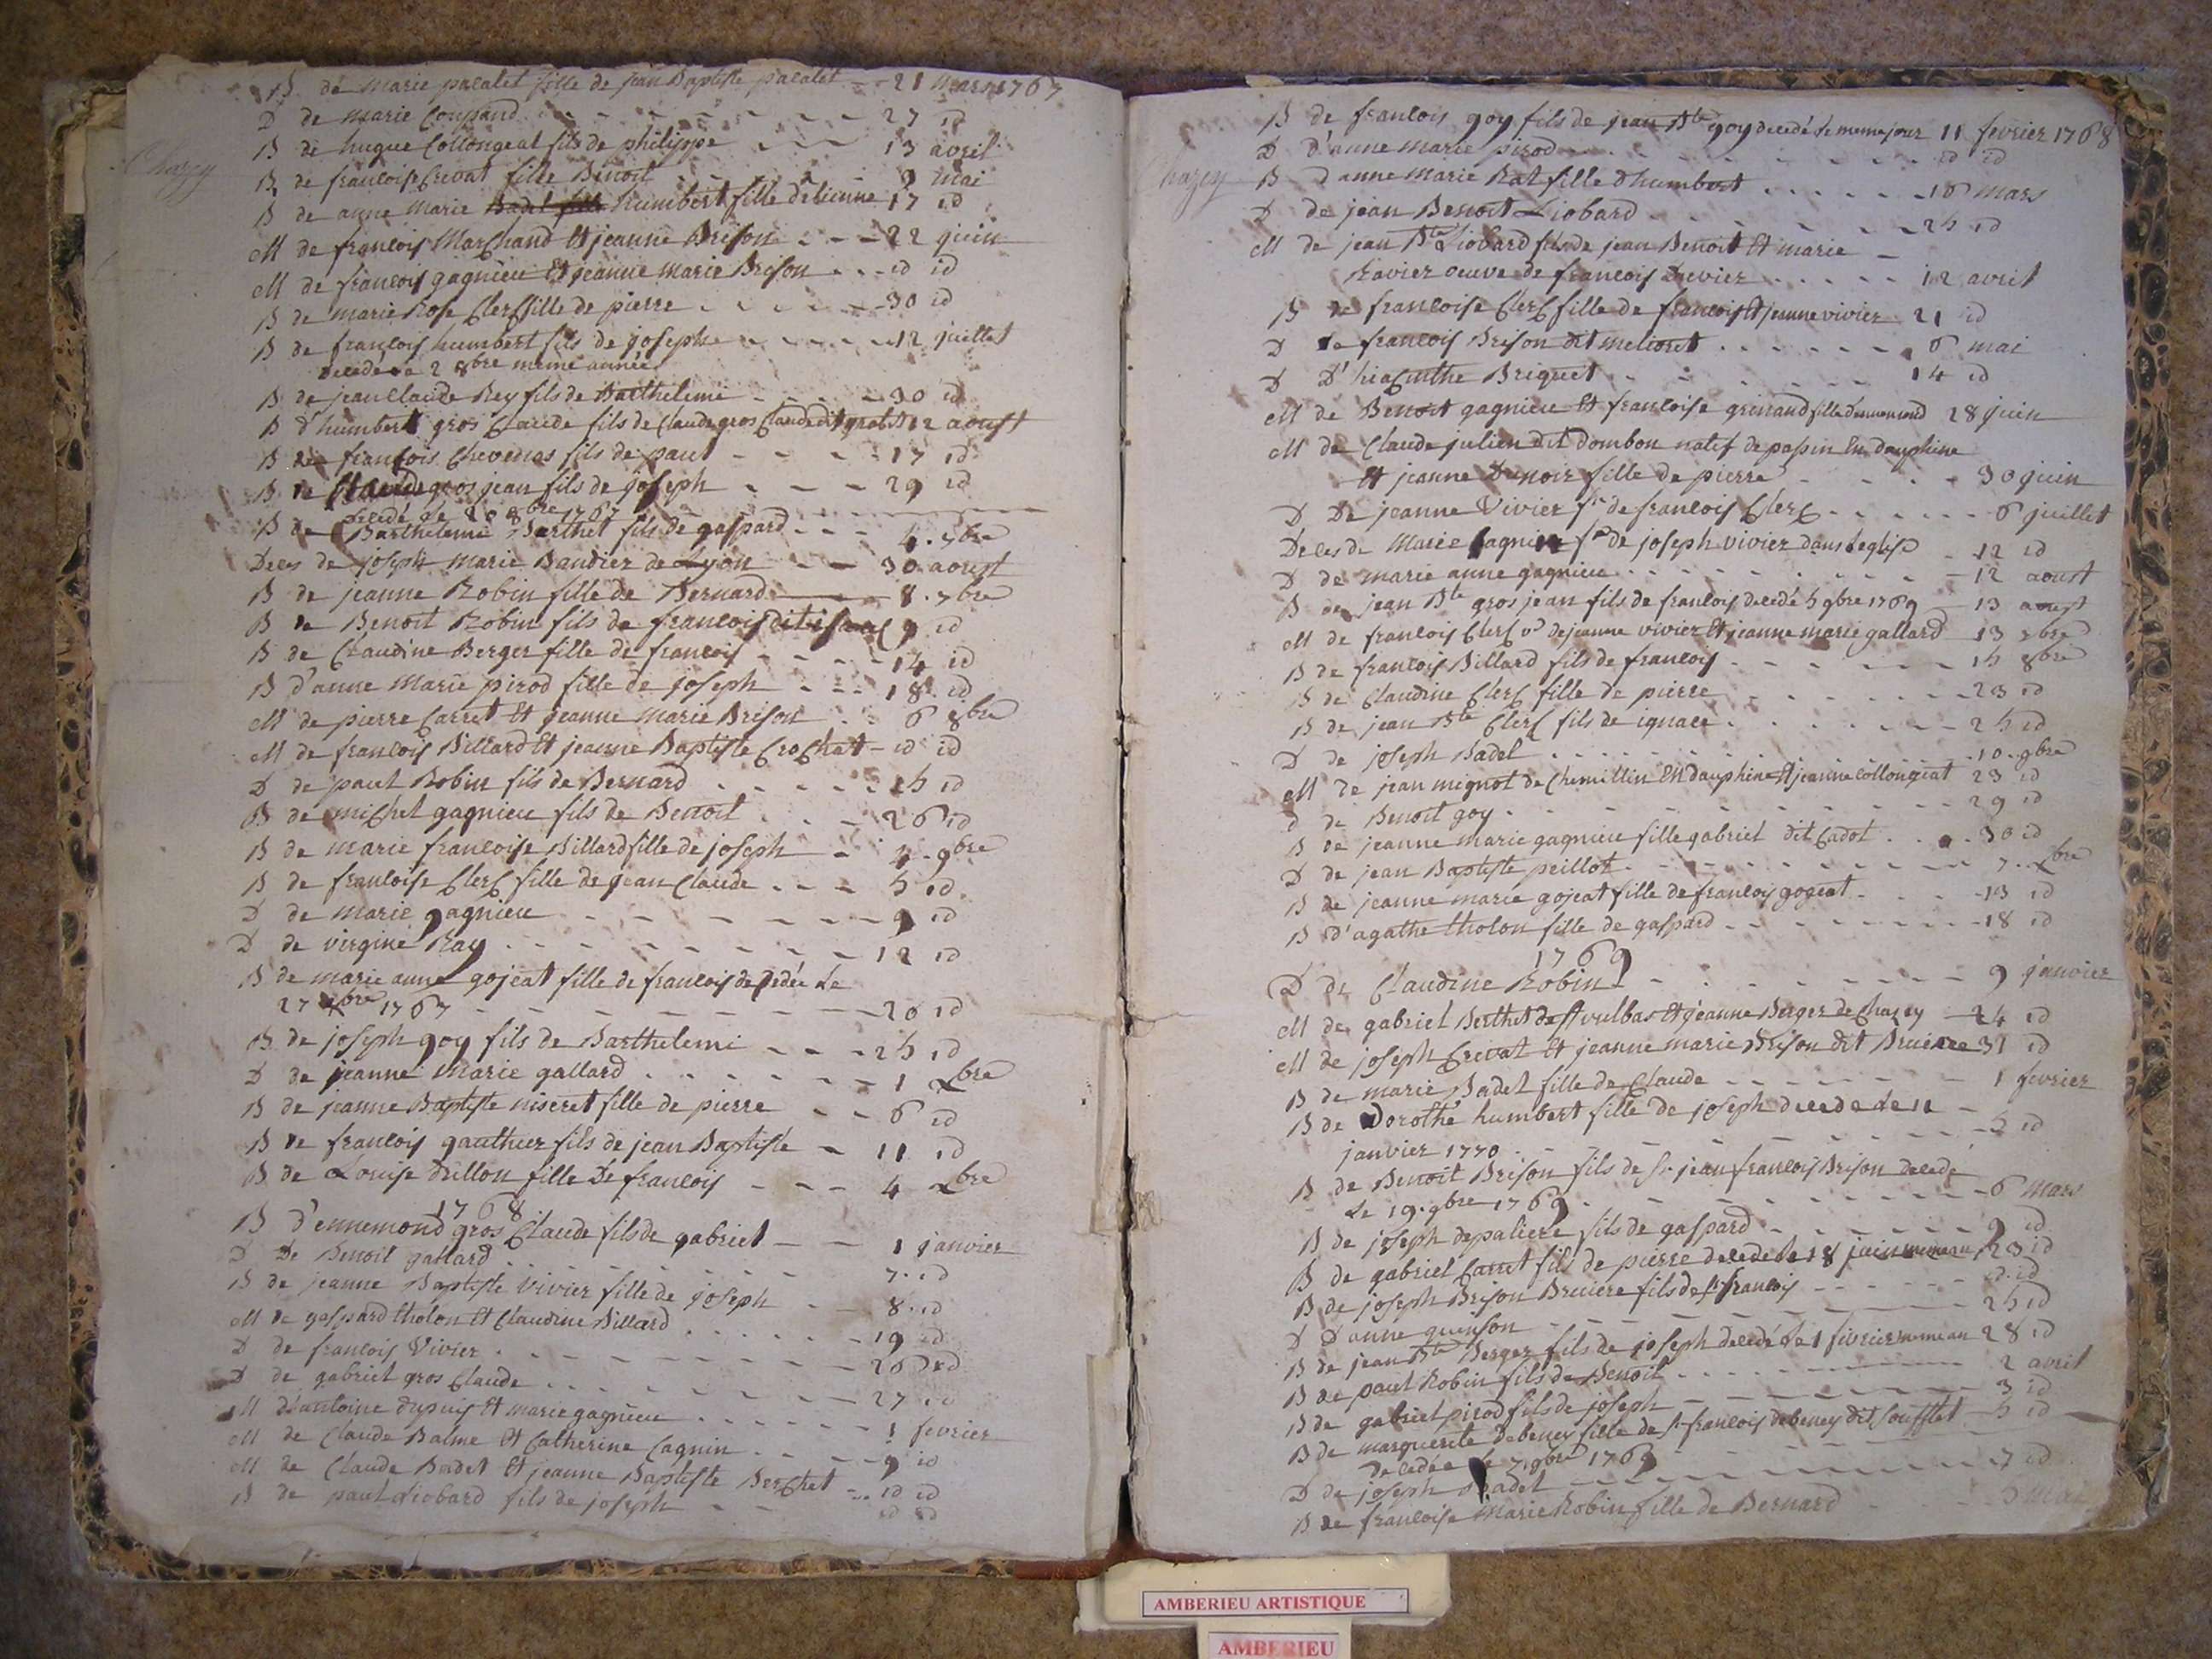 B de Marie palatet fille de jean Baptiste palatet - - 21 Mars 1767
D de Marie Coupand - - - 27 id
B de hugue Collongeat fils de philippe - - - 13 avril
Chazey
B de francoise Crevat fille Benoit - - - 9 mai
B de anne Marie humbert fille detienne 17 id
M de francois Marchand Et jeanne Brison - - - 22 juin
M de francois gagnieu Et jeanne marie Brison - - - id id
B de marie Rose Clerc fille de pierre - - - 30 id
B de francois humbert fils de joseph - - - 12 juillet
decedé le 2 8bre meme année
B de jean Claude Rey fils de Barthelemi - - - 30 id
B d'humbert gros Claude fils de Claude gros Claude dit 12 aoust
B de francois Chevenas fils de paul - - - 17 id
B de Claude gros jean fils de joseph - - - 29 id
decedé le 20 8bre 1767
B de Barthelemi Berthet fils de gaspard - - - 4 . 7bre
Deces de joseph Marie Baudier de Lyon - - 30 aoust
B de jeanne Robin fille de Bernard - - 8 . 7bre
B de Benoit Robin fils de francois dit 9 id
B de Claudine Berger fille de francois - - - 14 id
B d'anne Marie pirod fille de joseph - - - 18 id
M de pierre Carret Et jeanne Marie Brison - - 6 8bre
M de francois Billard Et jeanne Baptiste Crochat - id id
D de paul Robin fils de Bernard - - - 15 id
B de michel gagnieu fils de Benoit - - - 26 id
B de marie francoise Billard fille de joseph - 4 . 9bre
B de francoise Clerc fille de jean Claude - - - 5 id
D de Marie gagnieu - - - 9 id
D de virgine Ray - - - 12 id
B de marie anne gojeat fille de francois decedée Le
27 1767 - - - 20 id
B de joseph goy fils de Barthelemi - - - 25 id
D de jeanne Marie gallard - - - 1 Xbre
B de jeanne Baptiste niseret fille de pierre - - 6 id
B de francois gauthier fils de jean Baptiste - 11 id
B de Louise drillon fille de francois - - - 4 Xbre
1768
B d'ennemond gros Claude fils de gabriel - - 1 janvier
D De Benoit gallard - - - 7 . id
B de jeanne Baptiste Vivier fille de joseph - - 8 . id
M de gaspard tholon Et Claudine Billard - - - 19 id
D de francois Vivier - - - 26 id
D de gabriel gros Claude - - - 27 id
M d'antoine dupuy Et marie gagnieu - - - 1 fevrier
M de Claude Balme Et Catherine Cagnin - - - 9 id
M de Claude Badet Et jeanne Baptiste Berchet - - id id
B de paul Liobard fils de joseph - - id id
B de francois goy fils de jean Bte goy decedé le meme jour 11 fevrier 1768
D d'anne Marie pirod - - - id id
Chazey
B d'anne Marie Rat fille d'humbert - - - 16 mars
D de jean Benoit Liobard - - - 25 id
M de jean Bte Liobard fils de jean Benoit Et marie -
Ravier veuve de francois - - - 12 avril
B de francoise Clerc fille de francois Et jeanne vivier 21 id
D de francois Brison dit melioret - - - 6 mai
D D'hiacinthe Briquet - - - 14 id
M de Benoit gagnieu Et francoise grinand fille d'ennemond 28 juin
M de Claude julien dit dombon natif de passin En dauphine
Et jeanne Denoir fille de pierre - - - 30 juin
D De jeanne Vivier fe de francois Clerc - - - 6 juillet
Deces de Marie gagnieu fe de joseph vivier dans leglise - 12 id
D de marie anne gagnieu - - - 12 aoust
B de jean Bte gros jean fils de francois decedé 5 9bre 1769 - 13 aoust
M de francois Clerc vf de jeanne vivier Et jeanne marie gallard 13 7bre
B de francois Billard fils de francois - - - 15 8bre
B de Claudine Clerc fille de pierre - - - 23 id
B de jean Bte Clerc fils de ignace - - - 25 id
D de joseph Badel - - - 10 . 9bre
M de jean mignot de Chimillin En dauphine Et jeanne Collongeat 23 id
D de Benoit goy - - - 29 id
B de jeanne marie gagnieu fille gabriel dit Cadot - - - 30 id
D de jean Baptiste peillot - - - 7 . Xbre
B de jeanne marie gojeat fille de francois gogeat - - - 13 id
B d'agathe tholon fille de gaspard - - - 18 id
1769
D de Claudine Robin - - - 9 janvier
M de gabriel Berthet de st vulbas Et jeanne Berger de Chazey - 24 id
M de joseph Crevat Et jeanne marie Brison dit Bruiere 31 id
B de marie Badel fille de Claude - - - 1 fevrier
B de Dorothé humbert fille de joseph decede Le 11 -
janvier 1770 - - - 5 id
B de Benoit Brison fils de Sr jean francois Brison decedé
Le 19 . 9bre 1769 - - - 6 mars
B de joseph depaliere fils de gaspard - - - 9 id
B de gabriel Carret fils de pierre decedé le 18 juin meme an 23 id
B de joseph Brison Bruiere fils de sr francois - - - id . id
D D'anne quinson - - - 25 id
B de jean Bte Berger fils de joseph decedé le 1 fevrier meme an 28 id
B de paul Robin fils de Benoit - - - 2 avril
B de gabriel pirod fils de joseph - - - 3 id
B de marguerite debeney fille de sr francois debeney dit soufflet 5 id
decedée le 7 . 9bre 1769
D de joseph Badel - - - 7 id
B de francoise Marie Robin fille de Bernard - mai
AMBERIEU ARTISTIQUE
AMBERIEU